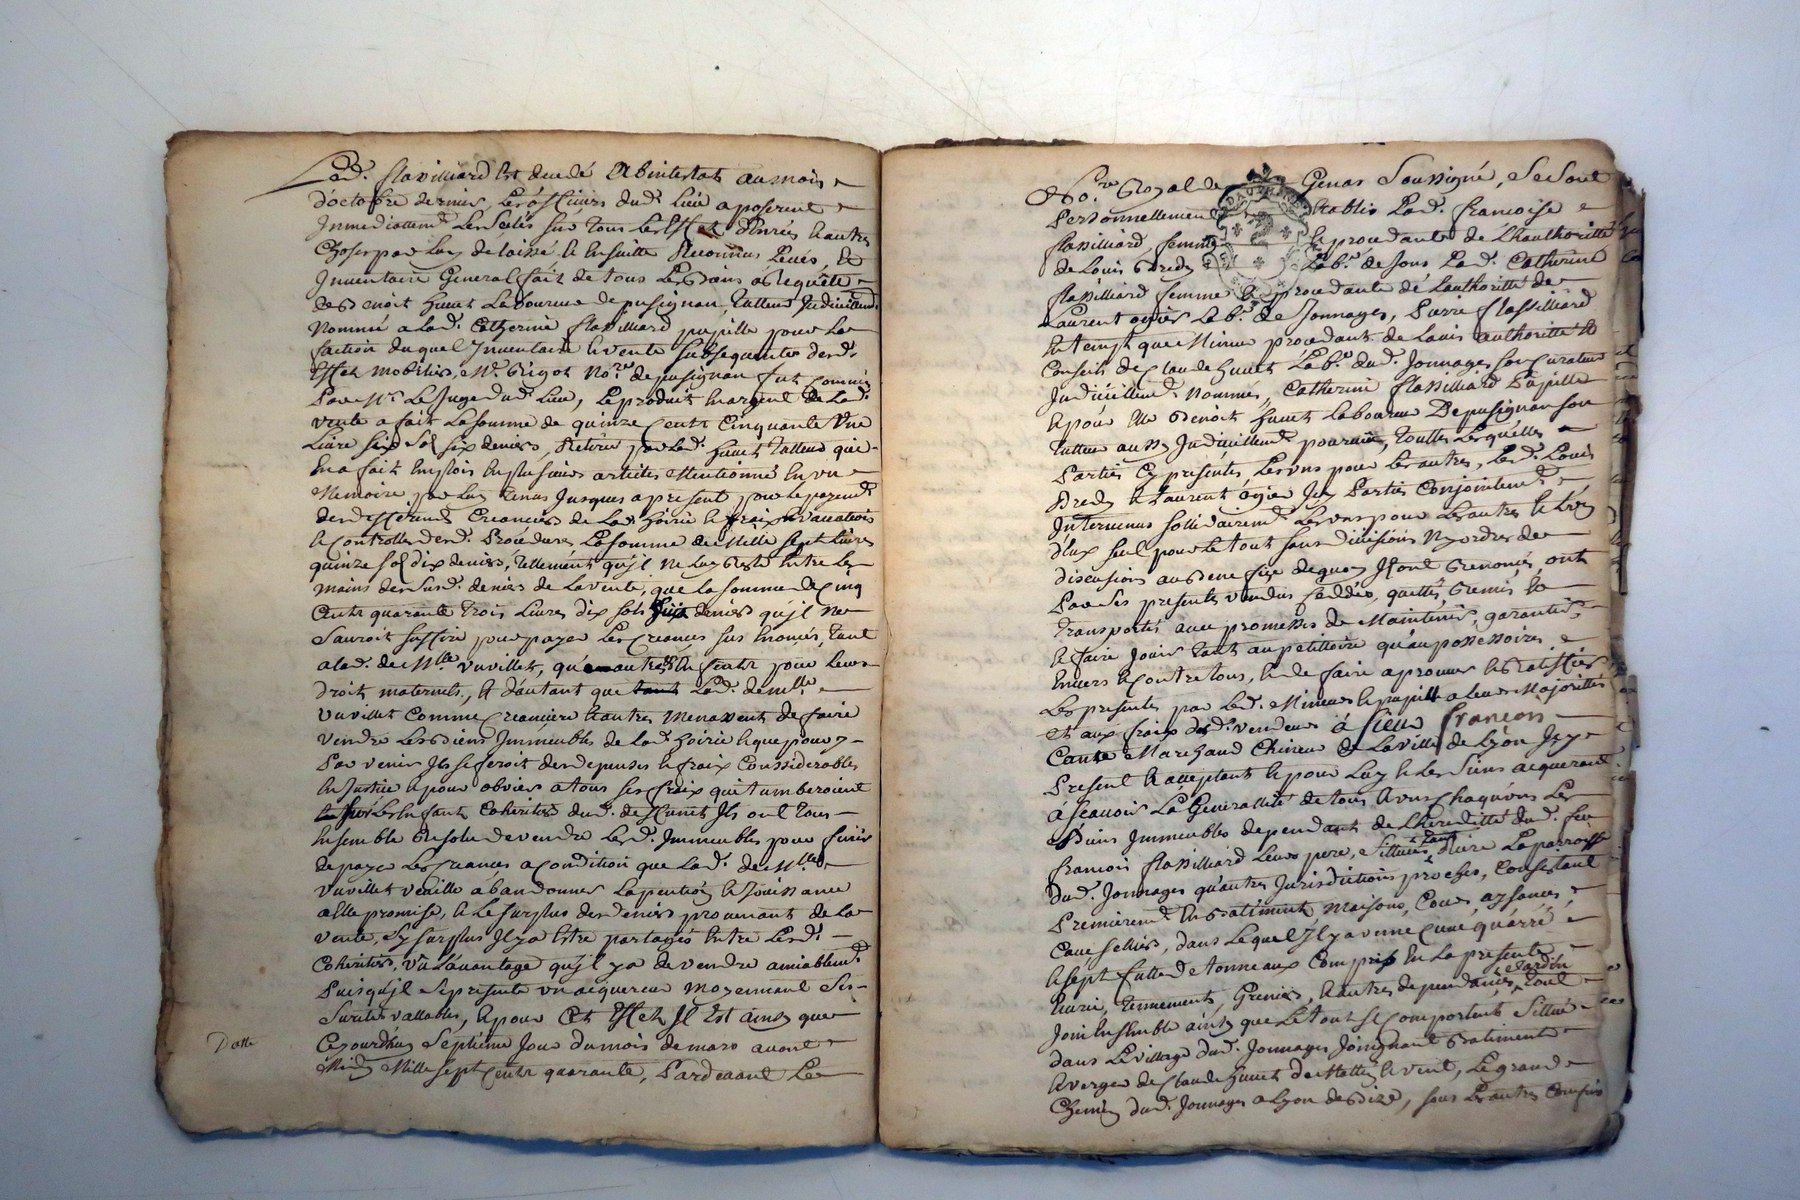 Lad. flavilliard Est decedé Abintestat au mois
d'octobre dernier, Les officiers dud. Lieu aposerent
Immediattemt. Les selés sur tous les Effets denrés & autres
Choses par luy delaissé & Ensuitte Reconnus Levés, &
Inventaire General fait de tous Les biens à Requête
de Benoit huvet Laboureur de pusignan, tutteur Judiciellemt.
Nommé a lad. Catherine flavilliard pupille pour La
faction duquel Inventaire & vente subsequente desd.
Effets mobiliers, Me. Grigot Nore. de pusignan fut commis
Par Mr. Le Juge dud. Lieu, Le produit & argent de Lad.
vente a fait La somme de quinze Cents Cinquante Une
Livre six sols six deniers, Retiré par Led. huvet tutteur qui
En a fait Emplois En plusieurs articles Mentionné En un
Memoire par luy tenus Jusques apresent pour le payemt.
des differends Creanciers de Lad. hoirie & fraix & vacations
& Controlles desd. Procedures La somme de Mille sept Livres
quinze sols dix deniers, tellement qu'jl Ne luy Reste Entre les
mains des susd. deniers de La vente, que La somme de Cinq
Cents quarante trois Livres dix sols huit deniers qu'jl ne
Sauroit suffire pour payer Les Creances sus Enoncés, tant
a lad. de Mlle. vuvillet, qu'autres
droit maternels, & d'autant que Lad. demlle.
vuvillet Comme Creanciere & autres Menassent de faire
vendre Les Biens Immeubles de Lad. hoirie & que pour y
Parvenir Jls se feroit des depenses & fraix Considerables
En Justice & pour obvier a tous ses fraix qui tumberoient
Les Enfants Cohéritiers dud. deffunt Jls ont tous
Ensemble Resolu de vendre Lesd. Immeubles pour finir
de payer Les Creances a condition que Lad. de Mlle.
Vuvillet veuille abandonner La pention & Jouissance
a Elle promise, & Le surplus des deniers provenant de La
vente, sy surplus Jl y a Estre partagés Entre Lesd.
Cohéritiers, vû L'avantage qu'jl y a de vendre amiablemt.
Puisqu'jl se presente un acquereur moyennant Ses
Suretés vallables, & pour Cet Effet Jl Est ainsy que
Cejourd'huy Septieme Jour du mois de mars avant
Midy Mille sept Cents quarante, Pardevant Le
Datte
Nore. Royal de Genas Soussigné, Se Sont
Personnellement Etablis Lad. francoise
flavilliard, femme & procedante de L'authorité
de Louis Bredy Labr. de Jons Lad. Catherine
flavilliard femme & procedante de L'authorité de
Laurent ogier Labr. de Jonnages, Pierre flavilliard
En tempt que Mineur procedant de L'avis authorité &
Conseils de Claude huvet Labr. dud. Jonnages son curateur
Judiciellemt. Nommés, Catherine flavilliard Pupille
& pour Elle Benoit huvet Laboureur De pusignan son
tutteur aussy Judiciellemt. pourvue, touttes Lesquelles
Parties Cy presentes, Les uns pour Les autres, Led. Louis
Bredy & Laurent ogier Jcy Parties Conjointemt.
Intervenus sollidairemt. Les uns pour Les autres & L'un
d'Eux seul pour Le tout sans division Ny ordre de
discussions au Benefice de quoy Jl ont Renoncés, ont
Par Ses presentes vendus Ceddés, quittés Remis &
transportés avec promesses de Maintenir, garantir,
& faire Jouir tant au petittoire qu'au possessoires
Envers & contre tous, & de faire aprouver & Ratiffier
Les presentes par Led. Mineur & pupille a leurs Majorittés
Et aux fraix desd. vendeurs à Sieur François
Cante Marchand Chineur de La ville de Lyon Jcy
Present & acceptant & pour Luy & Les Siens acquerant
à Scavoir La Generallité de tous & uns Chaqu'uns Les
Biens Immeubles dependant de L'heredité dud. feu
francois flavilliard Leurs pere, sittués tant Riere La parroisse
dud. Jonnages qu'autres Jurisdictions proches, Consistant
Premieremt. En Batiments, Maisons, Cour, aysances,
Cave Selliers, dans Lequel Jl y a une Cuve quarré
& sept futtes de tonneaux Compris En La presente
Ecurie, tennements, Greniers, & autres dependances, Jardin tout
Joint Ensemble ainsy que Le tout se Comportent Sittué
dans Le village dud. Jonnages Joignant Batiment
& verger de Claude huvet du Matin & vent, Le grand
Chemin dud. Jonnages a Lyon de Bize, sous Les autres Confins